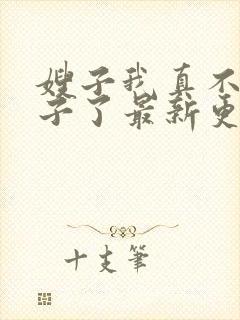 嫂子我真不
子了最新更
十支筆